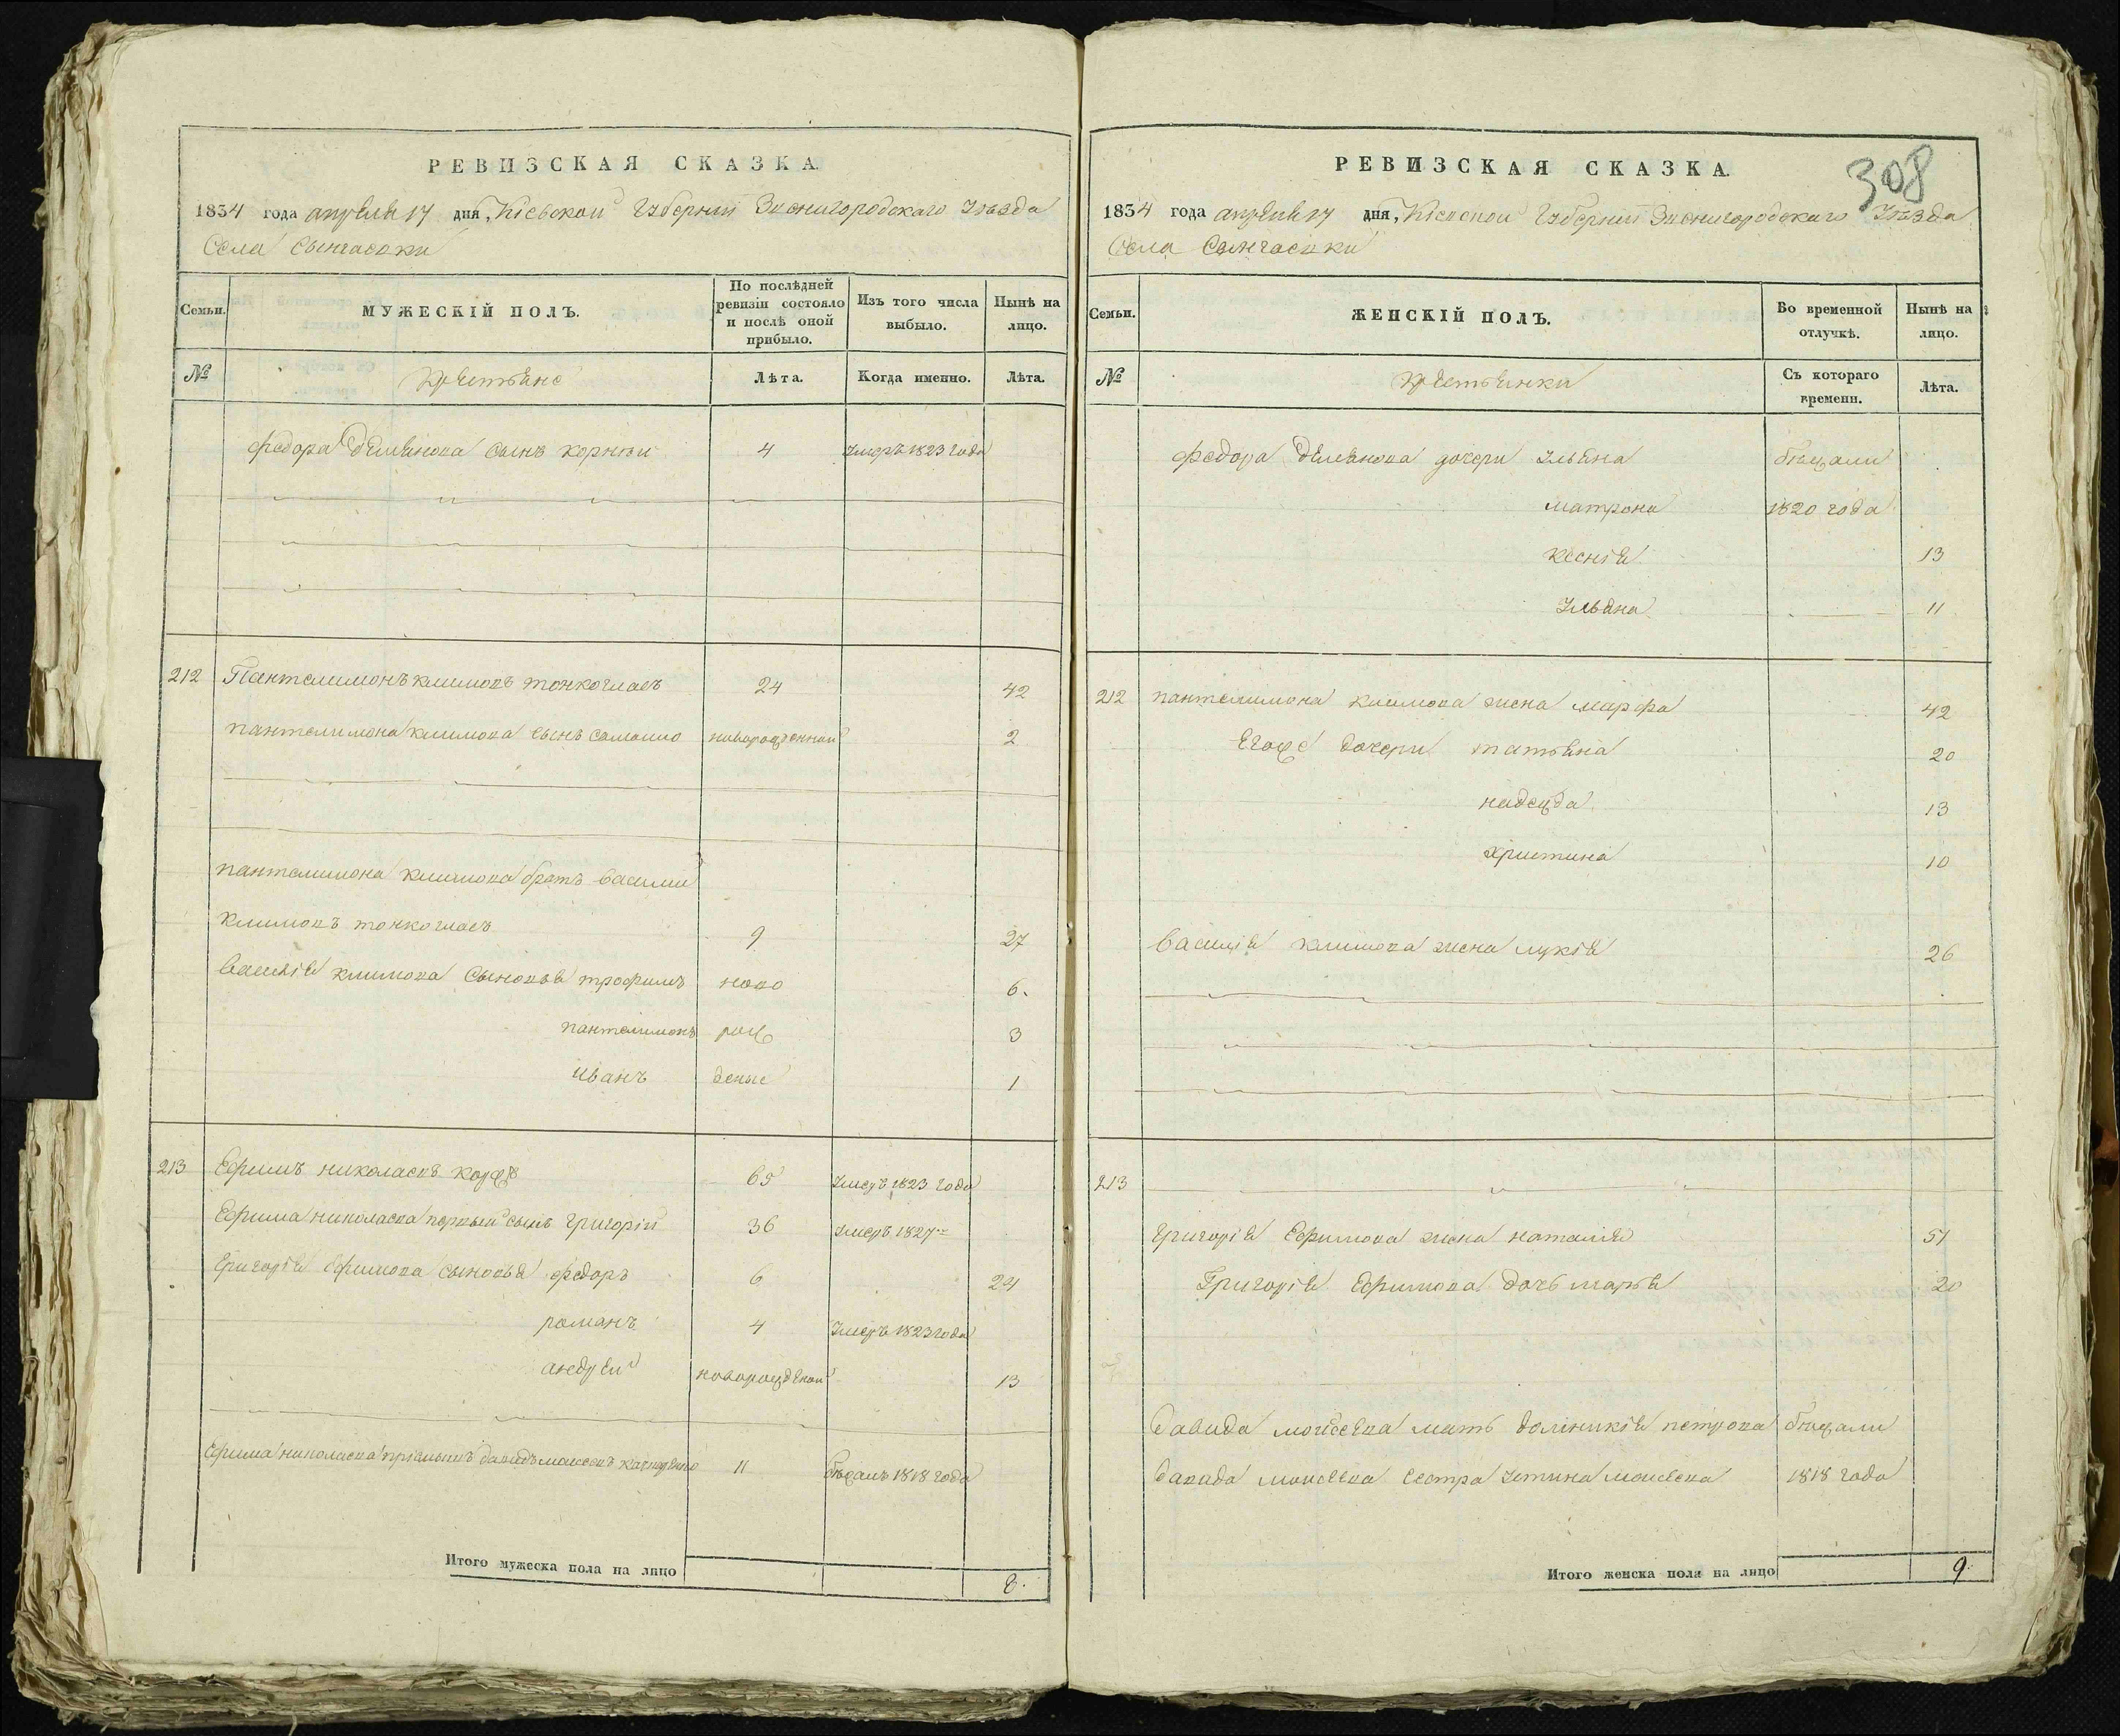 РЕВИЗСКАЯ СКАЗКА.
1834 года апреля 17 дня, Кіевской Губерніи Звенигородскаго Уезда
Села
Семьи.
МУЖЕСКІЙ ПОЛЪ.
По послѣдней ревизіи состояло и послѣ оной прибыло.
Изъ того числа выбыло.
Нынѣ на лицо.
№
Крестьяне
Лѣта.
Когда именно.
Лѣта.
Федора Демянова сынъ корнии 4 умеръ 1823 года
212 Пантелимонъ климовъ тонкогласъ 24 42
пантелимона климова сынъ самоило новорожденныи 2
пантелимона климова братъ василии
климовъ тонкогласъ 9 27
василія климова сыновья трофимъ ново 6.
пантелимонъ рож 3
иванъ деные 1
213 Ефимъ николаевъ 65 умеръ 1823 года
Ефима николаева первыи сынъ григоріи 36 умеръ 1827
григорія ефимова сыновья федоръ 6 24
романъ 4 умеръ 1823 года
андреи новорожденыи 13
Ефима николаева пріемышъ давидъ моисеевъ 11 бежалъ 1818 года
Итого мужеска пола на лицо 8.
РЕВИЗСКАЯ СКАЗКА.
308
1834 года апреля 17 дня, Кіевской Губерніи Звенигородскаго Уезда
Села
Семьи.
ЖЕНСКІЙ ПОЛЪ.
Во временной отлучкѣ.
Нынѣ на лицо.
№
Крестьянки
Съ котораго времени.
Лѣта.
Федора Демянова дочери ульяна бежали
матрона 1820 года
ксенія 13
ульяна 11
212 пантелимона климова жена марфа 42
Егоже дочери татьяна 20
надежда 13
христина 10
василія климова жена лукія 26
213
григорія Ефимова жена наталия 51
Григорія Ефимова дочь марья 20
давида моисеева мать долникія петрова бежали
давида моисеева сестра устина моисеева 1818 года
Итого женска пола на лицо 9.